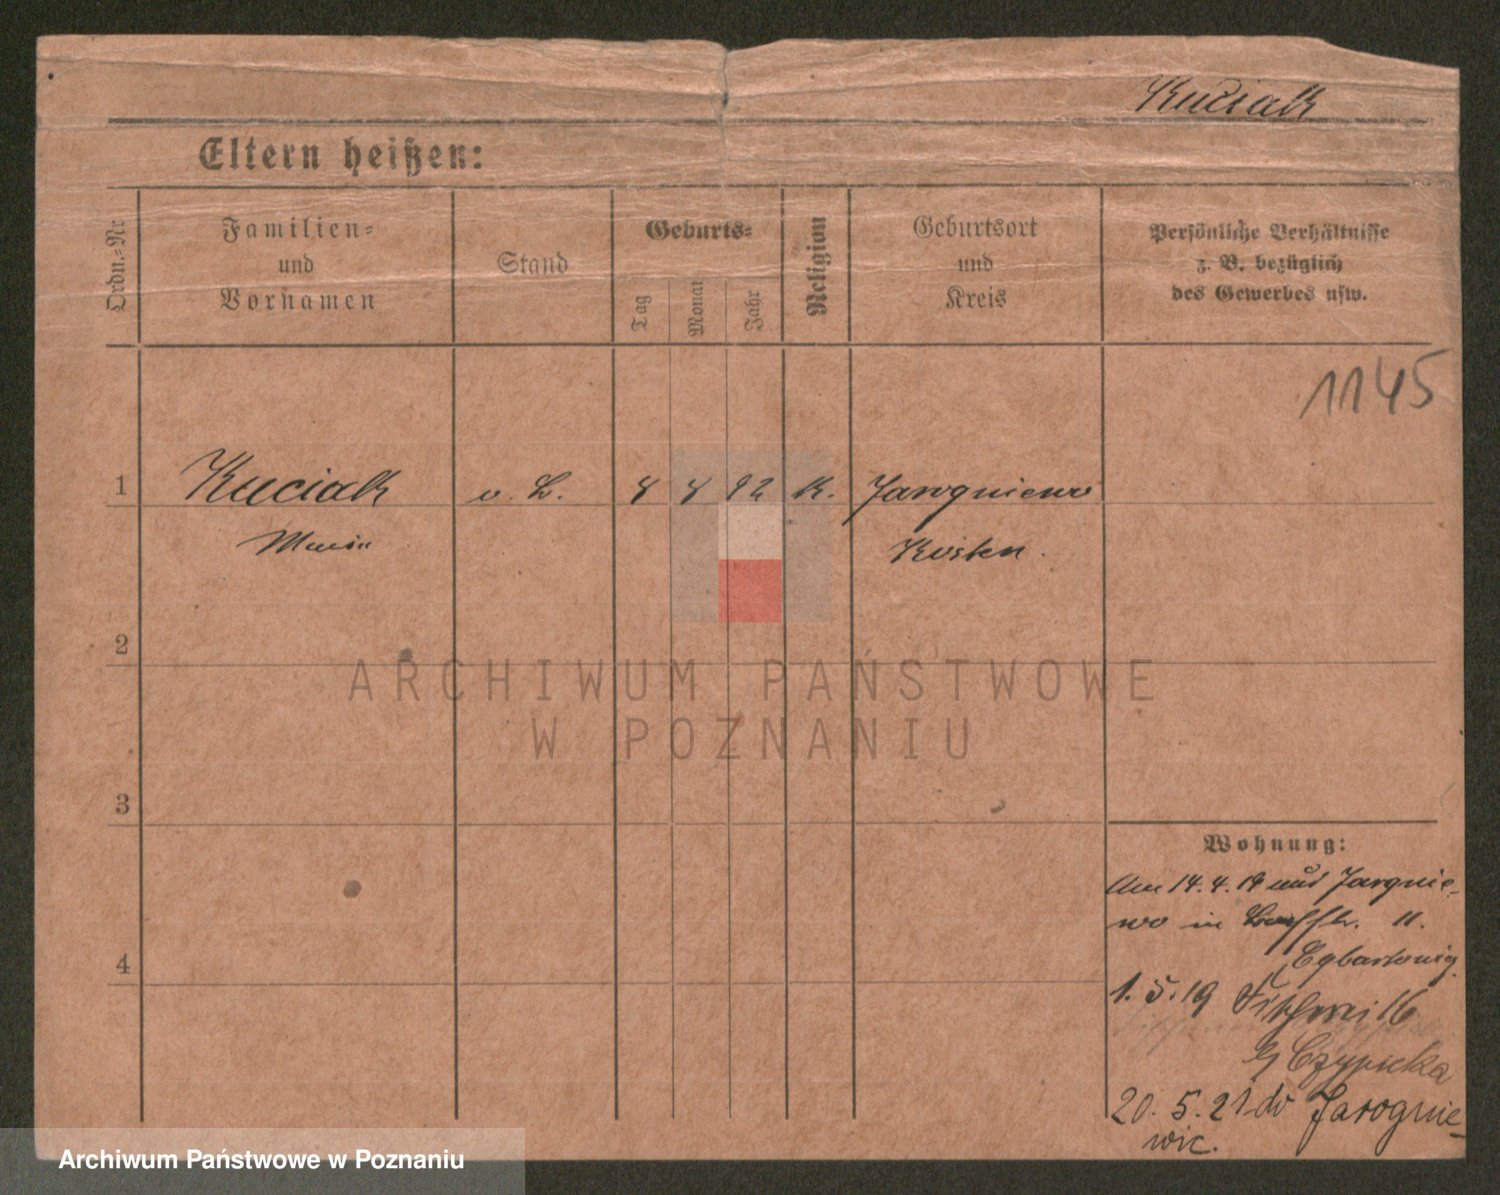 Kuciak
Eltern heißen:
Ordn.-Nr
Familien-
und
Vornamen
Stand
Geburts-
Tag
Monat
Jahr
Religion
Geburtsort
und
Kreis
Persönliche Verhältnisse
z. B. bezüglich
des Gewerbes usw.
1145
1 Kuciak o. B. 8 8 92 K. Jarogniewo
Maria Kosten.
2
ARCHIWUM PAŃSTWOWE
W POZNANIU
3
Wohnung:
Am 14.4.19 aus Jarognie-
wo in 11.
4
1.5.19 16
Czypicka
20.5.21 do Jarognie-
wic.
Archiwum Państwowe w Poznaniu